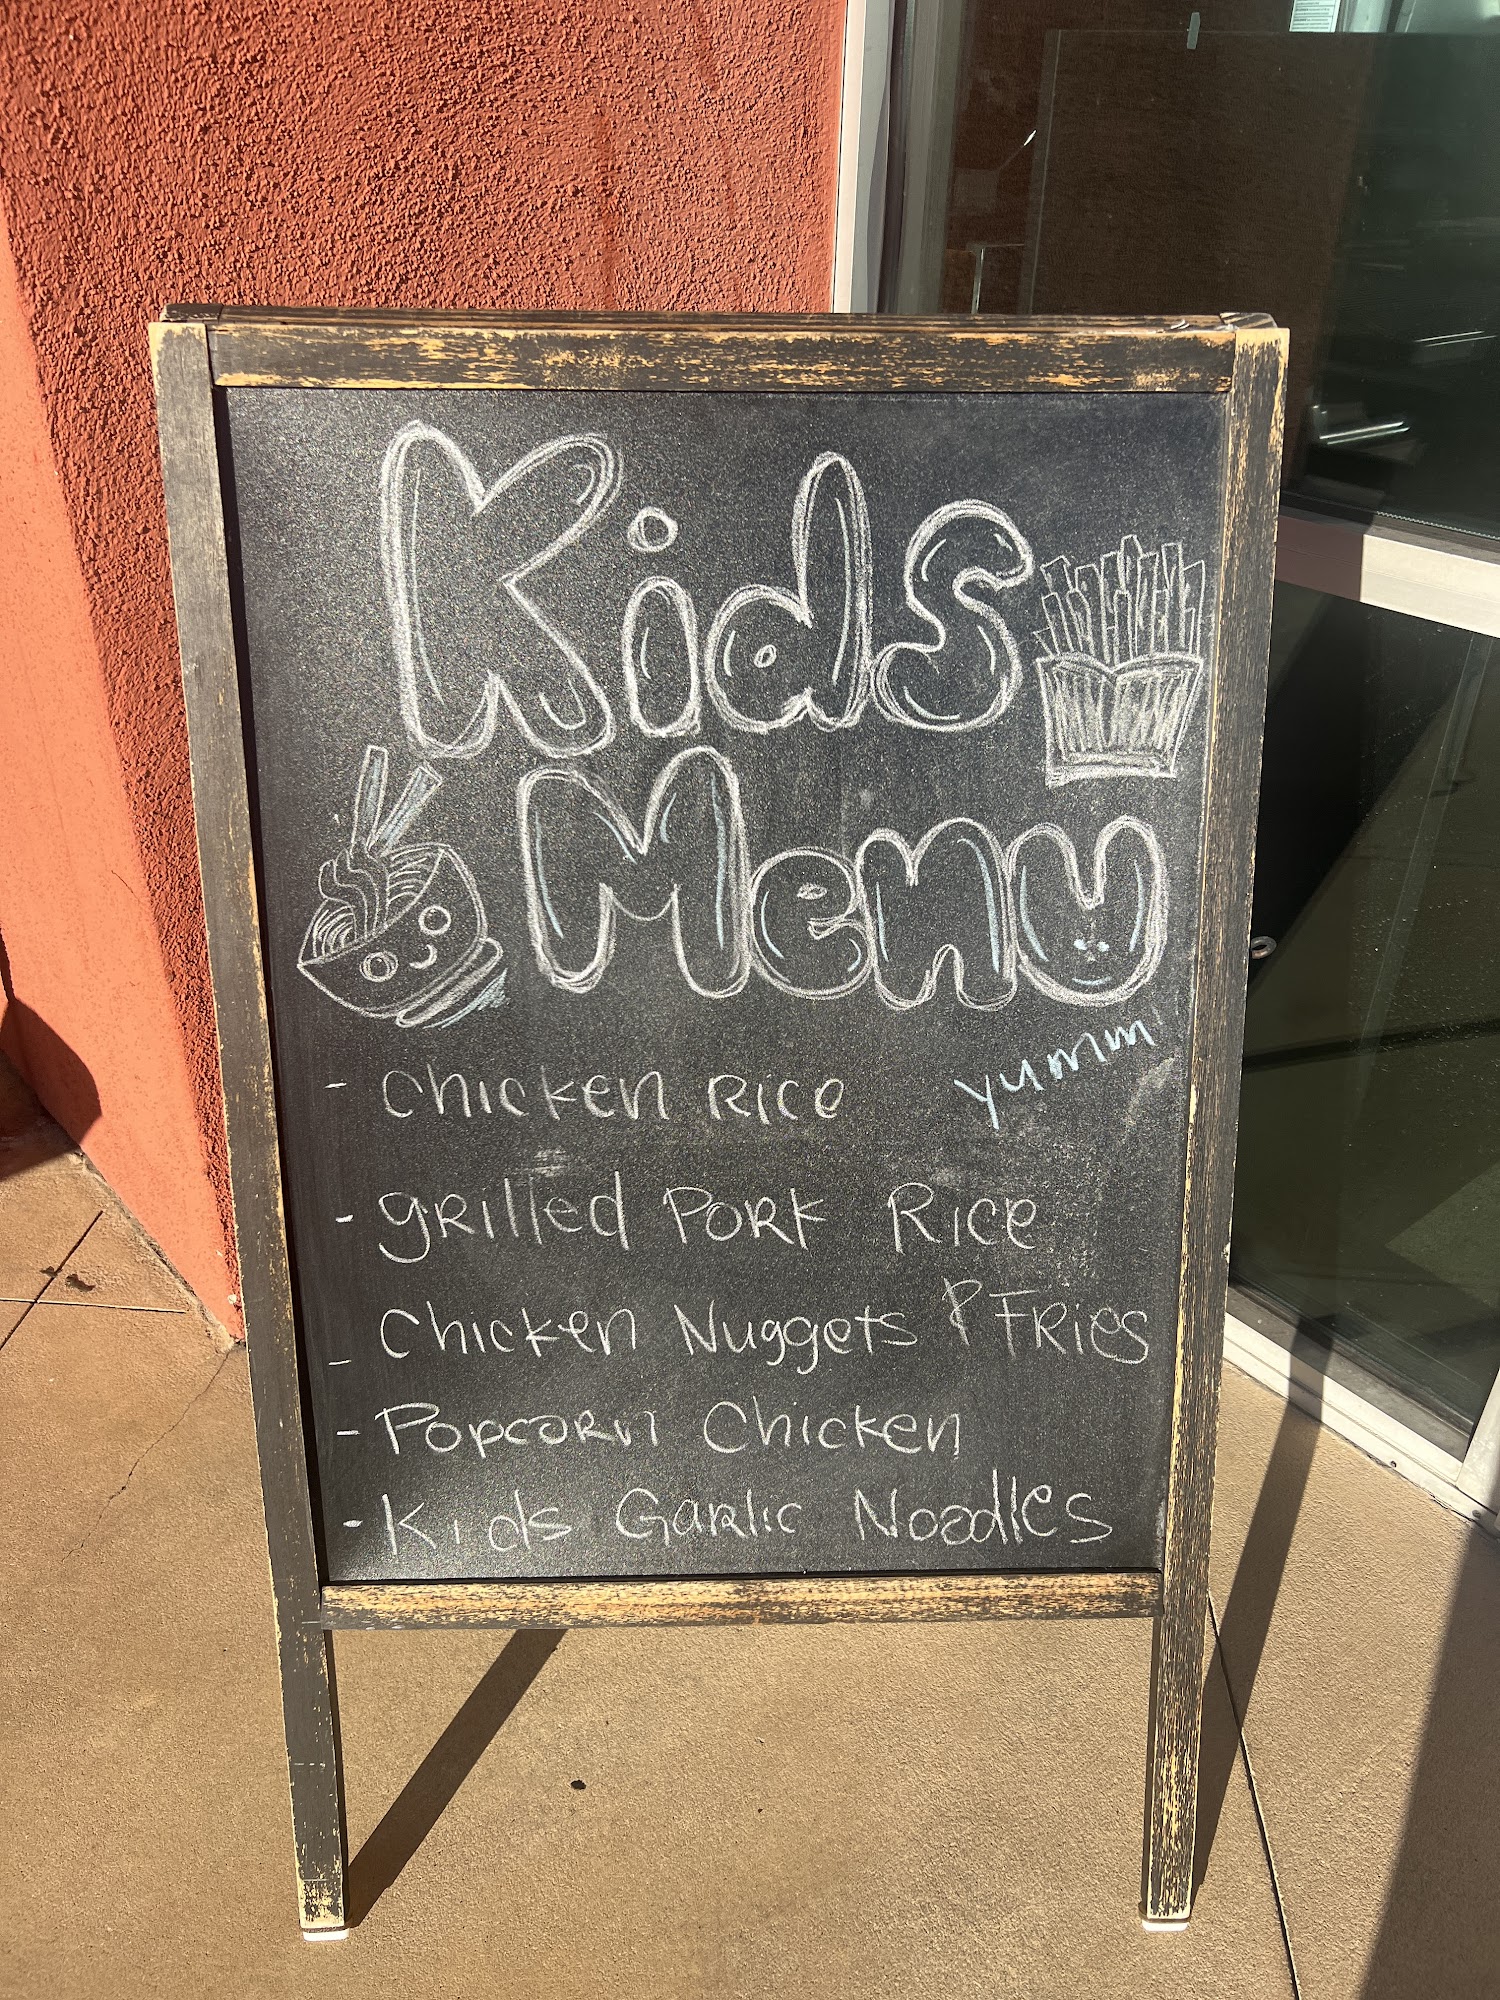 Kids
Menu
yumm
- Chicken Rice
- Grilled Pork Rice
- Chicken Nuggets & Fries
- Popcorn Chicken
- Kids Garlic Noodles